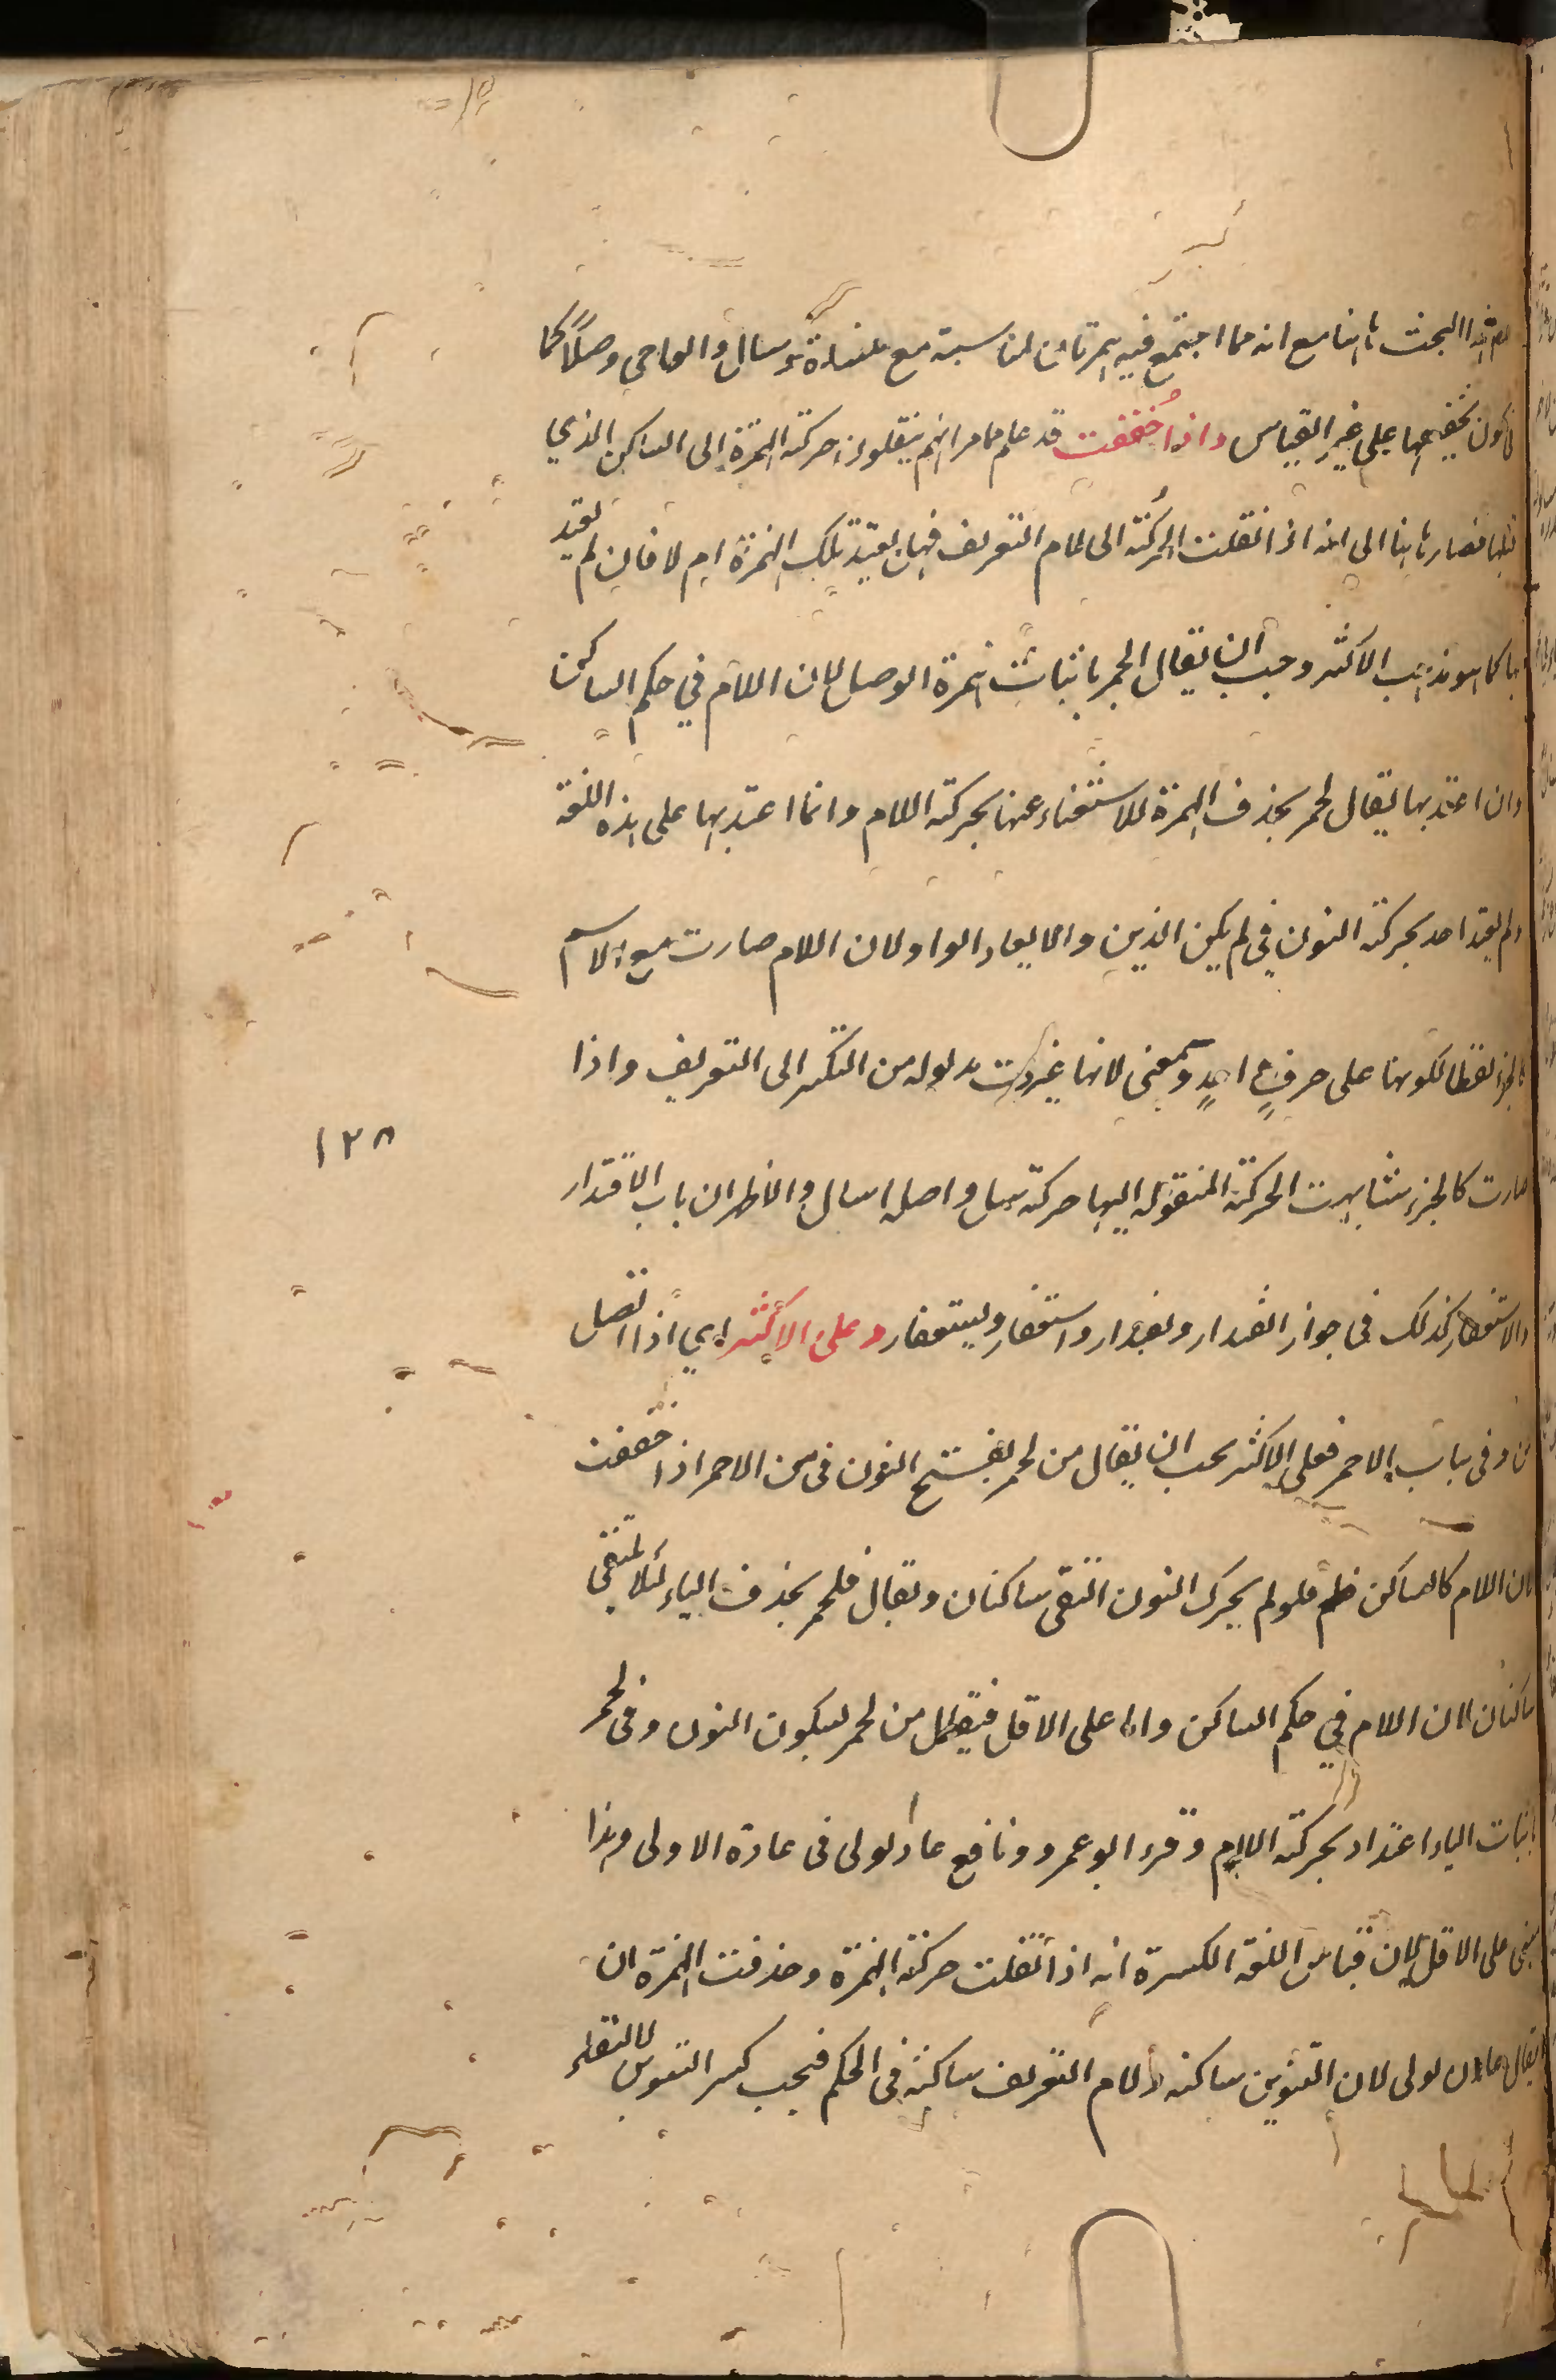 هذا البحث ههنا مع انه مما اجتمع فيه همزتان لمناسبته مع مسئلة سال والواجى وصلا كما
كون تخفيفهما على غير القياس واذا خففت قد علم مما مر انهم ينقلون حركة الهمزة الى الساكن الذي
قبلها فصار ههنا الى انه اذا نقلت الحركة الى لام التعريف فهل يعتد تلك الهمزة ام لا فان لم يعتد
بها كما هو مذهب الاكثر وجب ان يقال الحمر باثبات همزة الوصل لان اللام في حكم الساكن
وان اعتد بها يقال لحمر بحذف الهمزة للاستغناء عنها بحركة اللام وانما اعتد بها على هذه اللغة
ولم يعتد احد بحركة النون في لم يكن الذين والا يعاد الواو لان اللام صارت مع الاسم
كالجزء لفظا لكونها على حرفٍ احدٍ ومعنى لانها غيرت مدلوله من التنكير الى التعريف واذا
صارت كالجزء شابهت الحركة المنقولة اليها حركة سل واصله اسال والاظهر ان باب الاقتدار
١٢٨
والاستغفار كذلك فى جواز القدار ولقدار واستغفار ولستغفار وعلى الأكثر اي اذا اتصل
من وفى بباب الاحمر فعلى الاكثر يجب ان يقال من لحمر بفتح النون فى من الاحمر اذا خففت
لان اللام كالساكن فلو لم يحرك النون التقى ساكنان ويقال فلحمر بحذف الياء لئلا يلتقي
ساكنان لان اللام في حكم الساكن واما على الاقل فيقال من لحمر بسكون النون وفى لحمر
باثبات الياء اعتداد بحركة اللام وقرء ابو عمرو ونافع عاد لولى فى عادة الاولى وهذا
مبنى على الاقل لان قياس اللغة الكسرة انه اذا نقلت حركة الهمزة وحذفت الهمزة ان
يقال عادن لولى لان التنوين ساكنه ولام التعريف ساكنة فى الحكم فيجب كسر التنوين لالتقاء